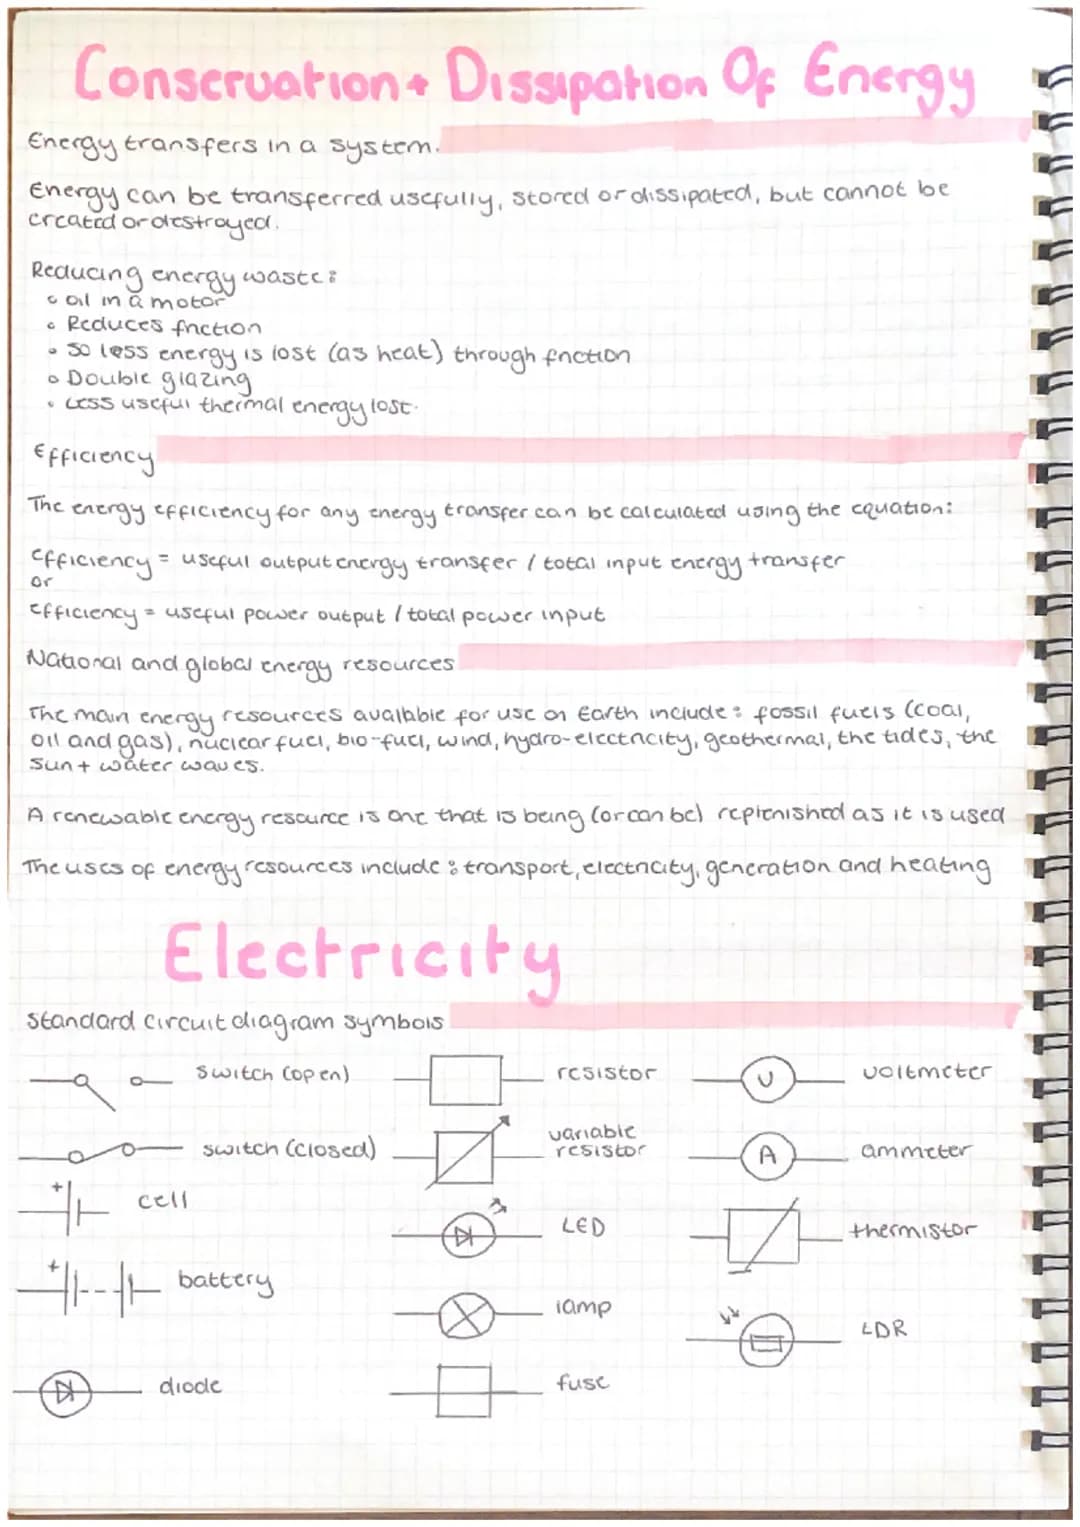 Conservation + Dissipation Of Energy
Energy transfers in a system.
Energy can be transferred usefully, stored or dissipated, but cannot be
created or destroyed.
Reducing energy waste:
• oil in a motor
• Reduces friction
• so less energy is lost (as heat) through friction
• Double glazing
• Less useful thermal energy lost.
Efficiency
The energy efficiency for any energy transfer can be calculated using the equation:
efficiency = useful output energy transfer / total input energy transfer
or
efficiency = useful power output / total power input
National and global energy resources
The main energy resources availible for use on Earth include: fossil fuels (coal,
oil and gas), nuclear fuel, bio-fuel, wind, hydro-electricity, geothermal, the tides, the
sun + water waves.
A renewable energy resource is one that is being (or can be) replenished as it is used
The uses of energy resources include: transport, electricity, generation and heating
Electricity
standard circuit diagram symbols
switch (open) resistor V voltmeter
switch (closed) variable
resistor A ammeter
+ cell LED thermistor
+ battery lamp LDR
diode fuse